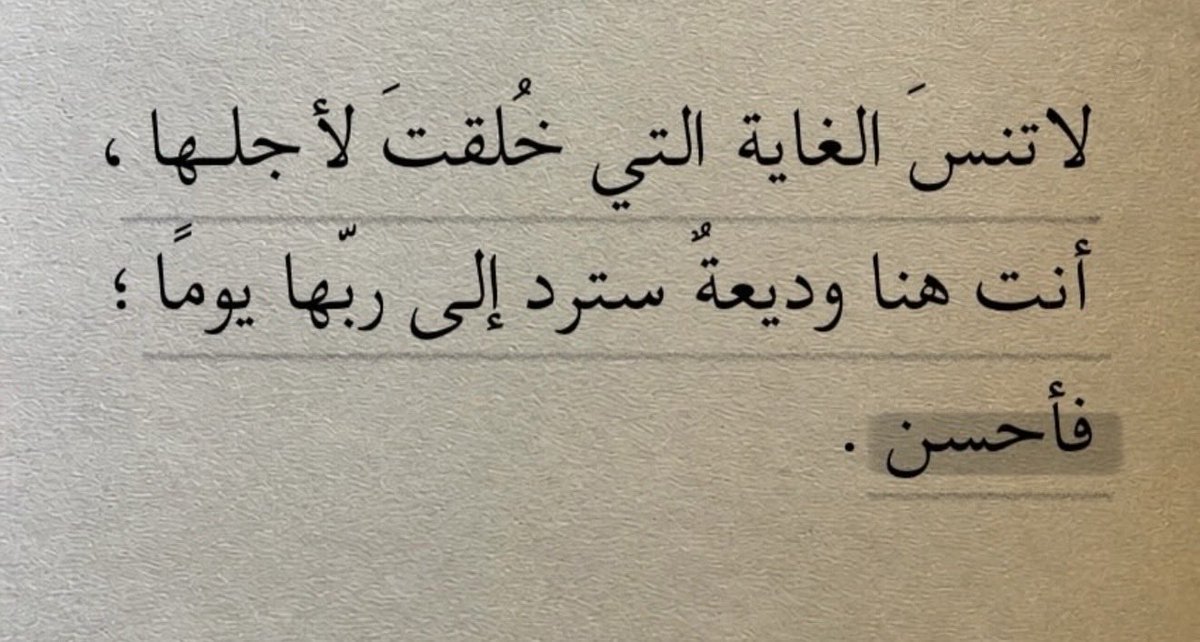 لاتنسَ الغاية التي خُلقتَ لأجلها ،
أنت هنا وديعةٌ سترد إلى ربّها يومًا ؛
فأحسن .